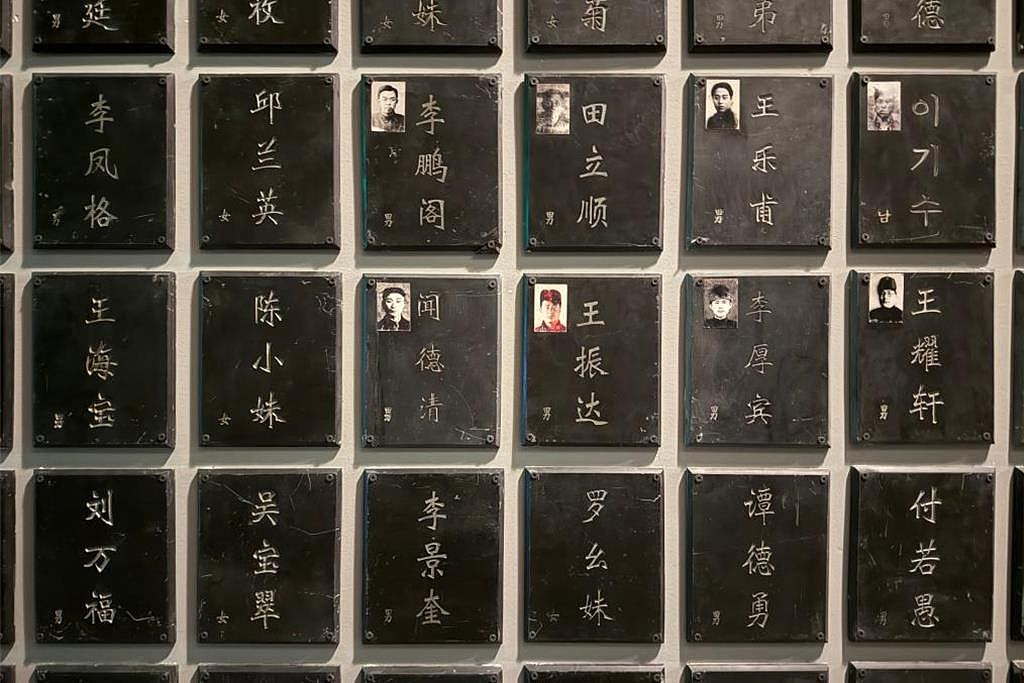 廷
女
妹
女
菊
女
弟
男
德
男
李凤格
男
邱兰英
女
李鹏阁
男
田立顺
男
王乐甫
男
이기수
남
王海宝
男
陈小妹
女
闻德清
男
王振达
男
李厚宾
男
王耀轩
男
刘万福
男
吴宝翠
女
李景奎
男
罗幺妹
女
谭德勇
男
付若愚
男